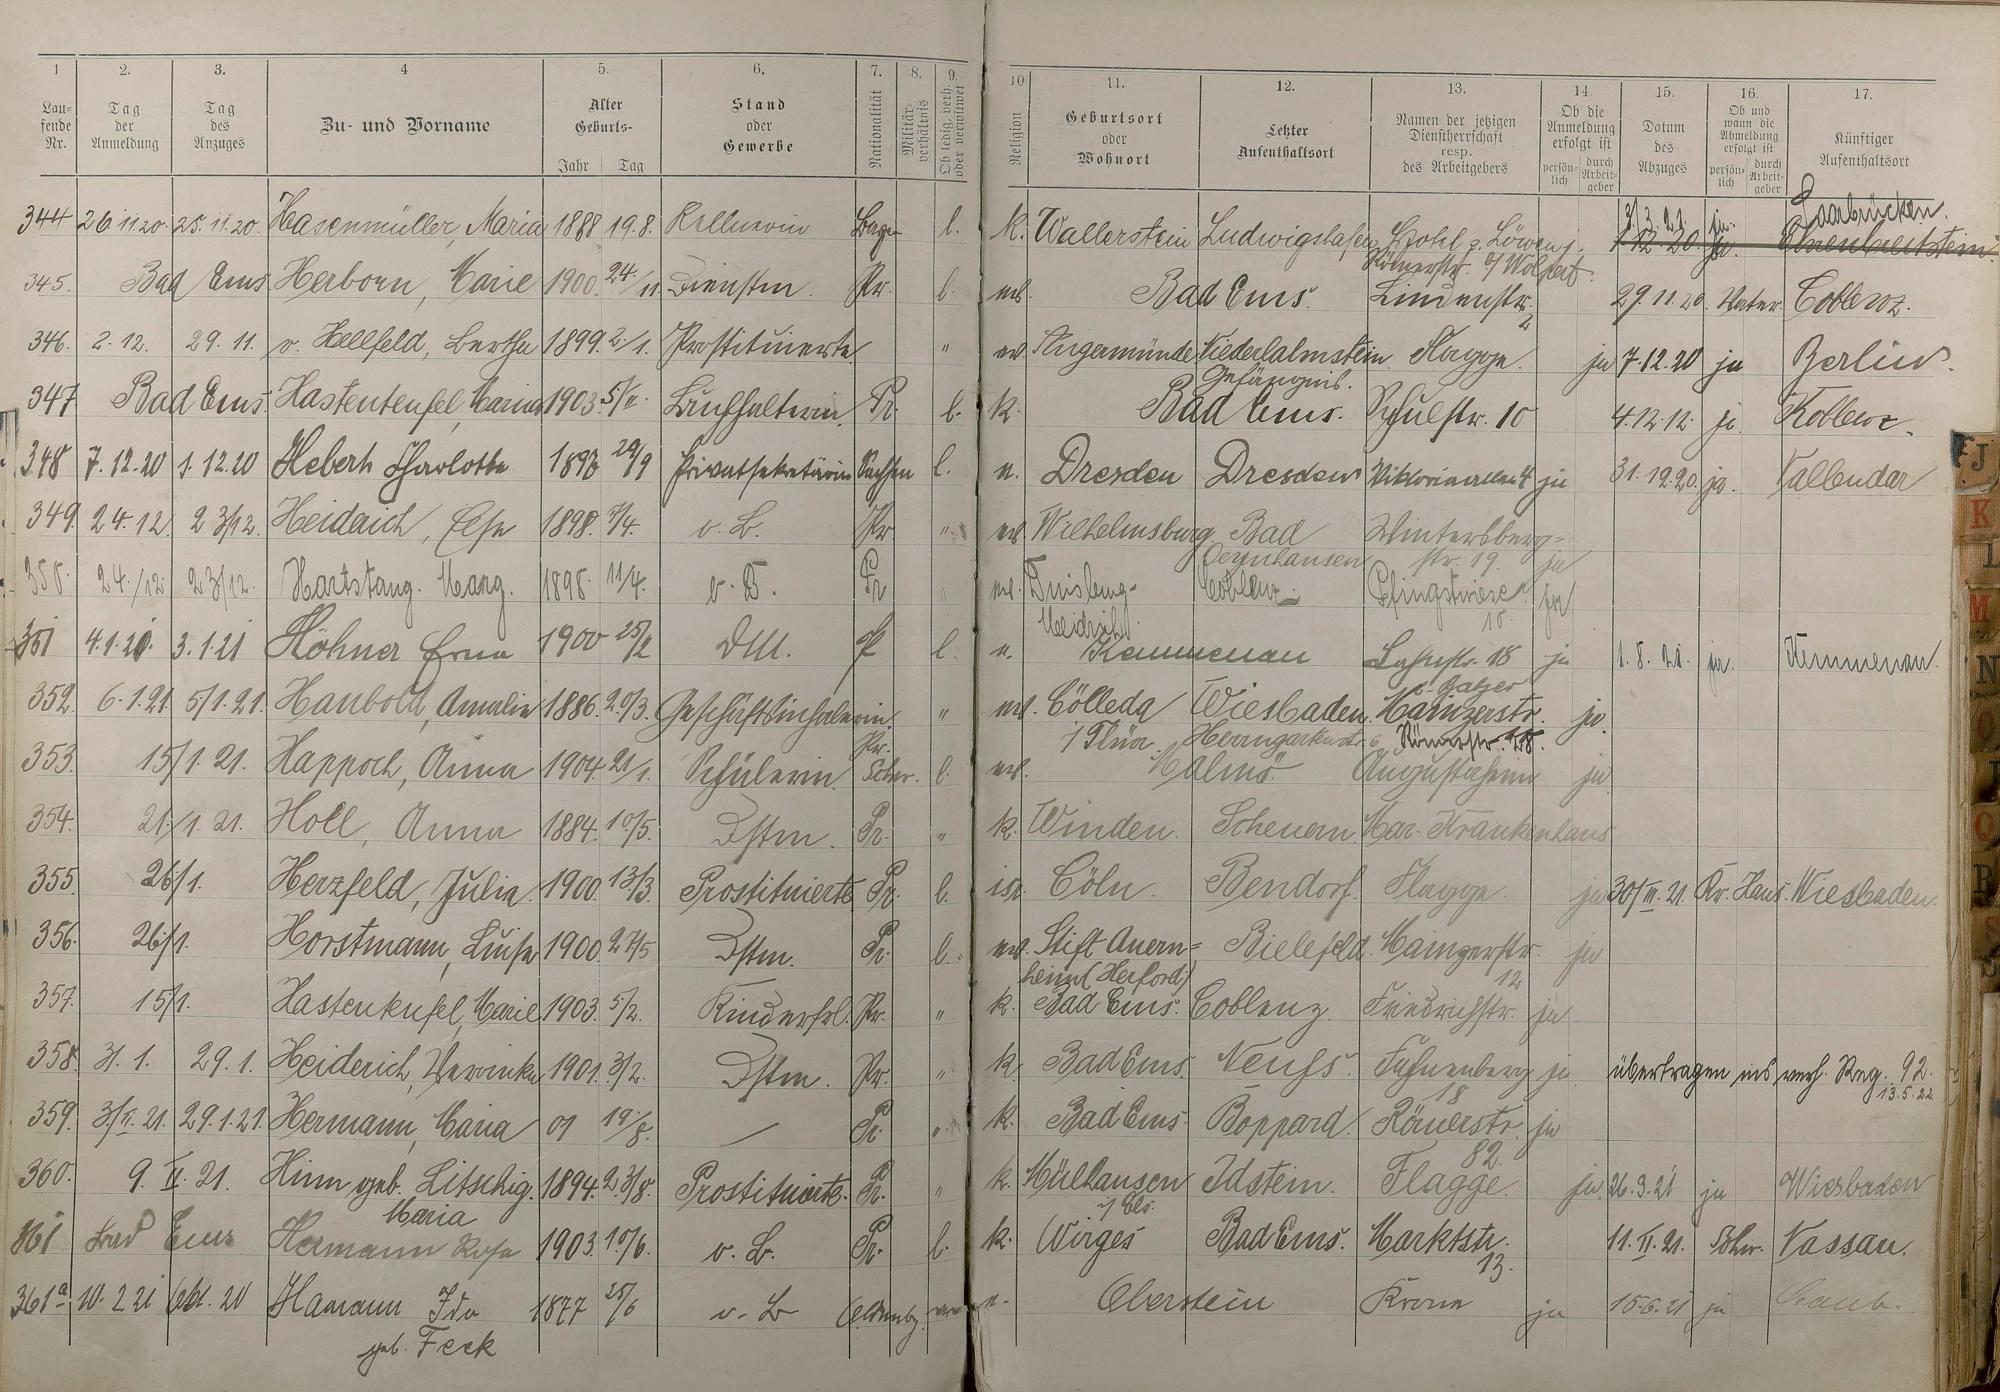 1 2. 3. 4 5. 6. 7. 8. 9. 10 11. 12. 13. 14. 15. 16. 17.
Lau-fende Nr. Tag der Anmeldung Tag des Anzuges Zu- und Vorname Alter Geburts- Jahr Tag Stand oder Gewerbe Nationalität Militär-verhältnis Ob ledig, verh. oder verwitwet Religion Geburtsort oder Wohnort Letzter Aufenthaltsort Namen der jetzigen Dienstherrschaft resp. des Arbeitgebers Ob die Anmeldung erfolgt ist persön-lich durch Arbeit-geber Datum des Abzuges Ob und wann die Abmeldung erfolgt ist persön-lich durch Arbeit-geber Künftiger Aufenthaltsort
3/3.21. ja. Saarbrücken.
344 26.11.20. 25.11.20. Hasenmüller, Maria 1888 19.8. Kellnerin l. k. Wallerstein Ludwigshafen Hotel z. Löwen 1.12.20. ja. Ehrenbreitstein.
Römerstr.
345. Bad Ems Herborn, Marie 1900. 24/11. Dienstm. Pr. l. ev. Bad Ems. Lindenstr. 2 29.11.20. Vater. Coblenz.
346. 2.12. 29.11. v. Hellfeld, Bertha 1899. 2/1. Prostituierte " ev. Angermünde Niederlahnstein Flagge. ja 7.12.20 ja Berlin.
Gefängnis.
347 Bad Ems. Hastenteufel, Maria 1903. 5/2. Buchhalterin. Pr. l. k. Bad Ems. Schulstr. 10 4.12.12. ja. Koblenz.
348 7.12.20 1.12.20 Hebert Charlotte 29/9 Privatsekretärin Sachsen l. Dresden Dresden Viktoriaallee 4 ja 31.12.20. ja. Vallendar
349. 24.12. 23/12. Heidrich, Else 1898. o. B. Pr " ev Wilhelmsburg Bad Wintersberg-
Oeynhausen str. 19. ja
350. 24./12. 23/12. Hartstang. Marg. 1898. 11/4. o. B. Pr " ev. Duisburg- Coblenz. Pfingstwiese ja
Meidrich. 10.
351 4.1.21. 3.1.21 Höhner Erna 1900 25/2 l. Kemmenau Lahnstr. 18 ja 1.8.21. ja. Kemmenau.
b. Balzer
352. 6.1.21. 5/1.21. Haubold, Amalie 1886. 20/3. Geschäftsinhaberin " ev. Cölleda Wiesbaden. Mainzerstr. ja.
Pr. i/Thür. Herrngartenstr. 6 Römerstr.
353. 15/1.21. Happoch, Anna 1904. 21/1. Schülerin. Schw. l. ev. Malmö. Augustaheim ja
354. 21./1.21. Holl, Anna 1884. 10/5. Dstm. Pr. " k. Winden. Scheuern. Mar. Krankenhaus
355. 26/1. Herzfeld, Julie 1900. 13/3. Prostituierte Pr. l. isr. Cöln. Bendorf. Flagge ja 30/III.21. Kr. Haus. Wiesbaden.
356. 26/1. Horstmann, Luise 1900. 27/5 Dstm. Pr. l. ev. Stift Quern- Bielefeld. Mainzerstr. ja
heim (Herford) 12
357. 15/1. Hastenteufel, Marie 1903. 5/2. Kinderfrl. Pr. " k. Bad Ems. Coblenz. Friedrichstr. ja
358. 31.1. 29.1. Heiderich, Veronika 1901. 3/2. Dstm. Pr. " k. Bad Ems. Neuss. Fahnenberg ja übertragen ins verh. Reg. 92.
18 13.5.22
359. 3/II.21. 29.1.21. Hermann, Maria 01 19/8. — Pr. " k. Bad Ems. Boppard. Römerstr. ja
82.
360. 9.II.21. Hinn geb. Litschig. 1894. 23/8. Prostituierte. Pr. " k. Mülhausen Idstein. Flagge. ja 26.3.21 ja Wiesbaden
Maria i/Els.
361 Bad Ems Hermann Rosa 1903. 10/6. o. B. Pr. l. k. Wirges Bad Ems. Marktstr. 11.II.21. Schw. Nassau.
13.
361a 10.2.21 Okt. 20 Hamann Ida 1877 25/6 o. B Oberstein Krone ja 15.6.21 ja Caub.
geb. Feck
J
K
L
M
N
O
P
Q
R
S